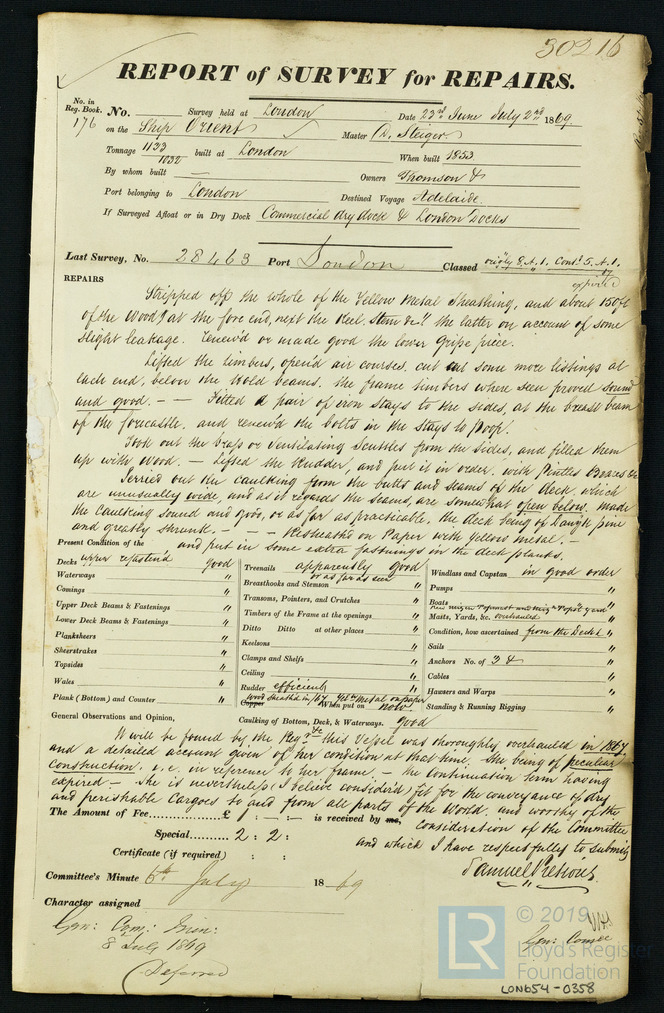 30216
REPORT of SURVEY for REPAIRS.
No. in Reg. Book. No. Survey held at London Date 23rd June July 2nd 1869
176 on the Ship Orient Master A. Steiger
Tonnage 1123 1032 built at London When built 1853
By whom built — Owners Thomson &
Port belonging to London Destined Voyage Adelaide.
If Surveyed Afloat or in Dry Dock Commercial dry dock & London Docks
Last Survey, No. 28463 Port London Classed 8.A.1. Contd. 5.A.1.
expired
REPAIRS
Stripped off the whole of the Yellow Metal Sheathing, and about 150 ft
of the Wood at the fore end, next the Keel Stem &c, the latter on account of some
slight leakage. Renew'd or made good the lower gripe piece.
Lifted the limbers, open'd air courses, cut out some more listings at
each end, below the Hold beams. the frame timbers where seen proved sound
and good. — — Fitted a pair of iron stays to the sides, at the breast beam
of the forecastle, and renew'd the bolts in the stays to Poop.
Took out the brass or Ventilating Scuttles from the sides, and filled them
up with wood. — Lifted the Rudder, and put it in order, with Pintles Braces &c
out the caulking from the butts and seams of the deck, which
are unusually wide, and as it regards the seams, are somewhat open below. made
the caulking sound and good, or as far as practicable, the deck being of pine
and greatly shrunk. — — — Resheath'd on Paper with Yellow Metal, —
and put in some extra fastnings in the deck planks.
Present Condition of the
Decks upper refasten'd good
Waterways "
Comings "
Upper Deck Beams & Fastenings "
Lower Deck Beams & Fastenings "
Planksheers "
Sheerstrakes "
Topsides "
Wales "
Plank (Bottom) and Counter "
Treenails apparently good
or as far as seen
Breasthooks and Stemson "
Transoms, Pointers, and Crutches "
Timbers of the Frame at the openings "
Ditto Ditto at other places "
Keelsons "
Clamps and Shelfs "
Ceiling "
Rudder efficient
wood sheath'd in /67 Yelw Metal on paper
Copper When put on now.
Caulking of Bottom, Deck, & Waterways. good
Windlass and Capstan in good order
Pumps "
Boats "
Masts, Yards, &c. overhauled "
Condition, how ascertained from the Deck &c "
Sails "
Anchors No. of 3 & "
Cables "
Hawsers and Warps "
Standing & Running Rigging "
General Observations and Opinion,
It will be found by the Reg. this Vessel was thoroughly overhauled in 1867
and a detailed account given of her condition at that time. She being of peculiar
construction. in reference to her frame. — the continuation term having
expired — She is nevertheless (I believe) consider'd fit for the conveyance of dry
and perishable Cargoes to and from all parts of the World. and worthy of the
consideration of the Committee
and which I have respectfully to submit
The Amount of Fee £ : — : — is received by me,
Special 2 : 2 :
Certificate (if required) : :
Samuel Pretious.
Committee's Minute 6th July 1869
Character assigned
8 July 1869
Deferred
© 2019
LR
Lloyd's Register
Foundation
LON654-0358